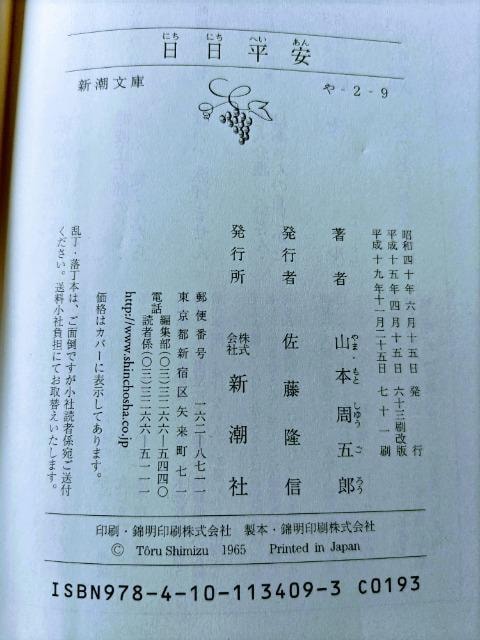 日日平安
新潮文庫
や-2-9
昭和四十年六月十五日発行
平成十五年四月十五日六十三刷改版
平成十九年十一月二十五日七十一刷
著者 山本周五郎
発行者 佐藤隆信
発行所 株式会社 新潮社
郵便番号 一六二―八七一一
東京都新宿区矢来町七一
電話 編集部(〇三)三二六六―五四四〇
読者係(〇三)三二六六―五一一一
http://www.shinchosha.co.jp
価格はカバーに表示してあります。
乱丁・落丁本は、ご面倒ですが小社読者係宛ご送付
ください。送料小社負担にてお取替えいたします。
印刷・錦明印刷株式会社 製本・錦明印刷株式会社
© Tôru Shimizu 1965 Printed in Japan
ISBN978-4-10-113409-3 C0193